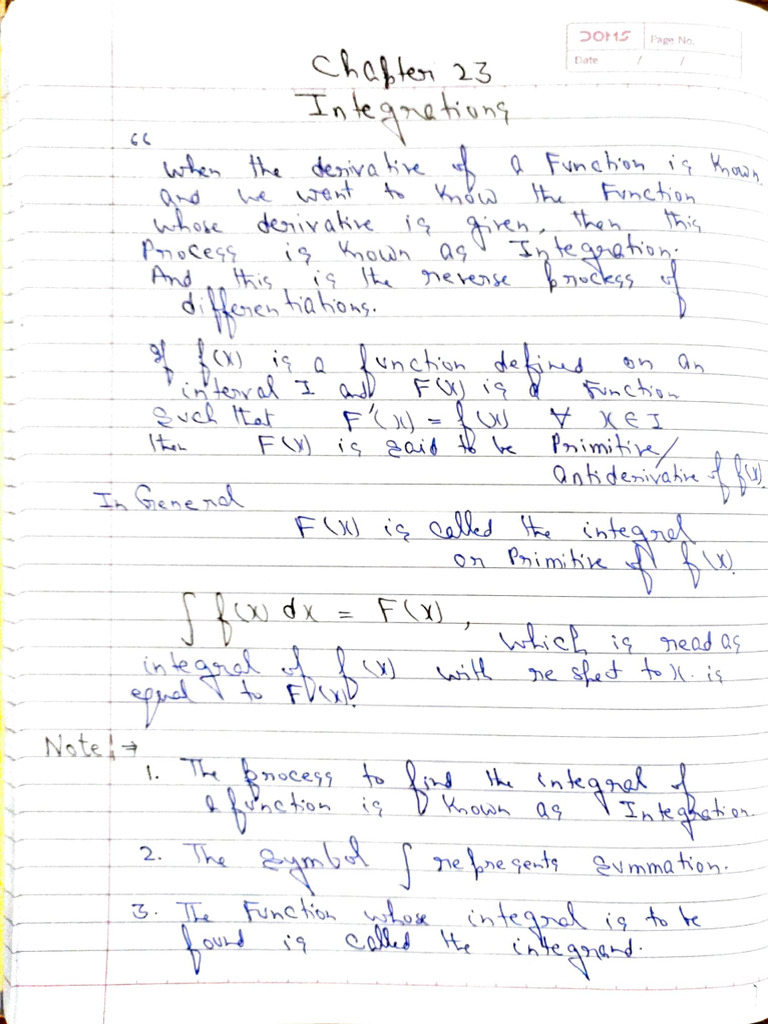 DOMS Page No.
Date / /
Chapter 23
Integrations
“
When the derivative of a Function is known
and we want to know the Function
whose derivative is given, then this
Process is known as Integration.
And this is the reverse process of
differentiations.
If f(x) is a function defined on an
interval I and F(x) is a Function
such that F'(x) = f(x) ∀ x ∈ I
then F(x) is said to be Primitive/
antiderivative of f(x).
In General
F(x) is called the integral
or Primitive of f(x).
∫ f(x) dx = F(x),
which is read as
integral of f(x) with respect to x. is
equal to F(x).
Note: →
1. The process to find the integral of
a function is known as Integration.
2. The symbol ∫ represents summation.
3. The Function whose integral is to be
found is called the integrand.